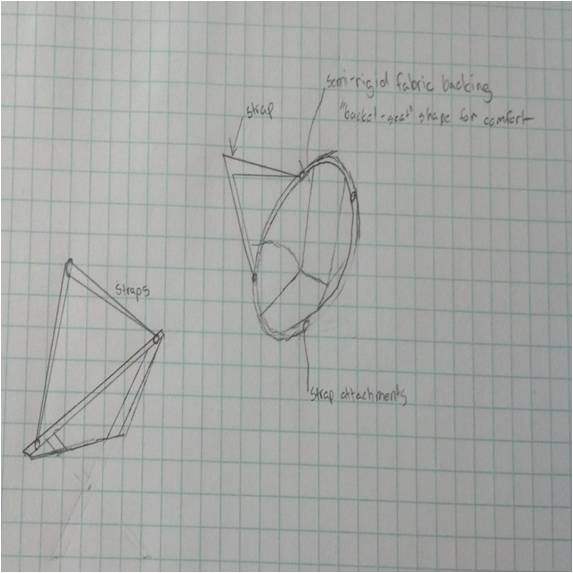 semi-rigid fabric backing
"bucket-seat" shape for comfort
strap
straps
strap attachments